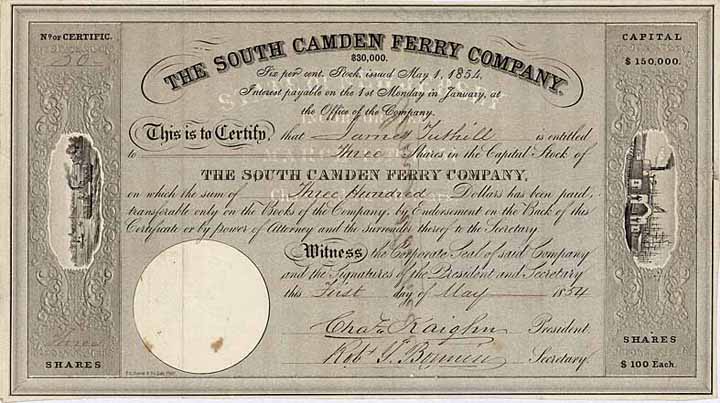 No. OF CERTIFIC.
50
CAPITAL
$150,000.
THE SOUTH CAMDEN FERRY COMPANY
$30,000.
Six per cent. Stock, issued May 1, 1854,
Interest payable on the 1st Monday in January, at
the Office of the Company.
This is to Certify, that James Tuthill is entitled
to Three Shares in the Capital Stock of
THE SOUTH CAMDEN FERRY COMPANY,
on which the sum of Three Hundred Dollars has been paid,
transferable only on the Books of the Company, by Endorsement on the Back of this
Certificate or by power of Attorney and the surrender thereof to the Secretary.
Witness the Corporate Seal of said Company
and the Signatures of the President and Secretary
this First day of May 1854
Chas. Kaighn President
Robt. Secretary.
Three
SHARES
SHARES
$100 Each.